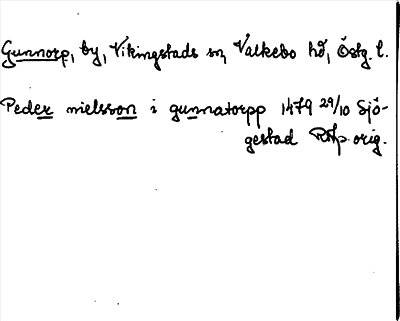 Gunnorp, by, Vikingstads sn, Valkebo hd, Östg. l.
Peder nielsson i gunnatorpp 1479 29/10 Sjö-
gestad RAp. orig.